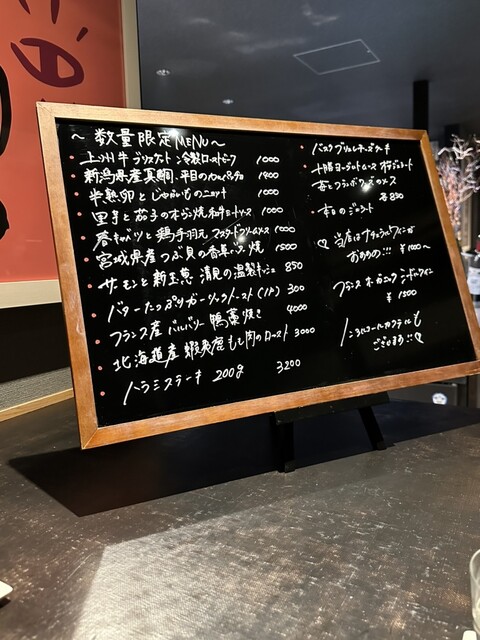 〜 数量限定MENU 〜
上州牛ブリスケット 冷製ローストビーフ 1000
新潟県産真鯛、平目のカルパッチョ 1900
半熟卵とじゃがいものニョッキ 1000
里芋と茄子のオーブン焼 和牛ミートソース 1000
春キャベツと鶏手羽元 マスタードクリームソース 1000
宮城県産つぶ貝の香草バター焼 1500
サーモンと新玉葱 清見の温製キッシュ 850
バターたっぷりガーリックトースト(1P) 300
フランス産バルバリー鴨藁焼き 4000
北海道産蝦夷鹿もも肉のロースト 3000
ハラミステーキ 200g 3200
バスクブリュレチーズケーキ
十勝ヨーグルトムース
各 830
本日のジェラート
当店はナチュラルワインが
おすすめ!!! ¥1000〜
フランス オーガニック
¥1500
ノンアルコールカクテルも
ございます!!